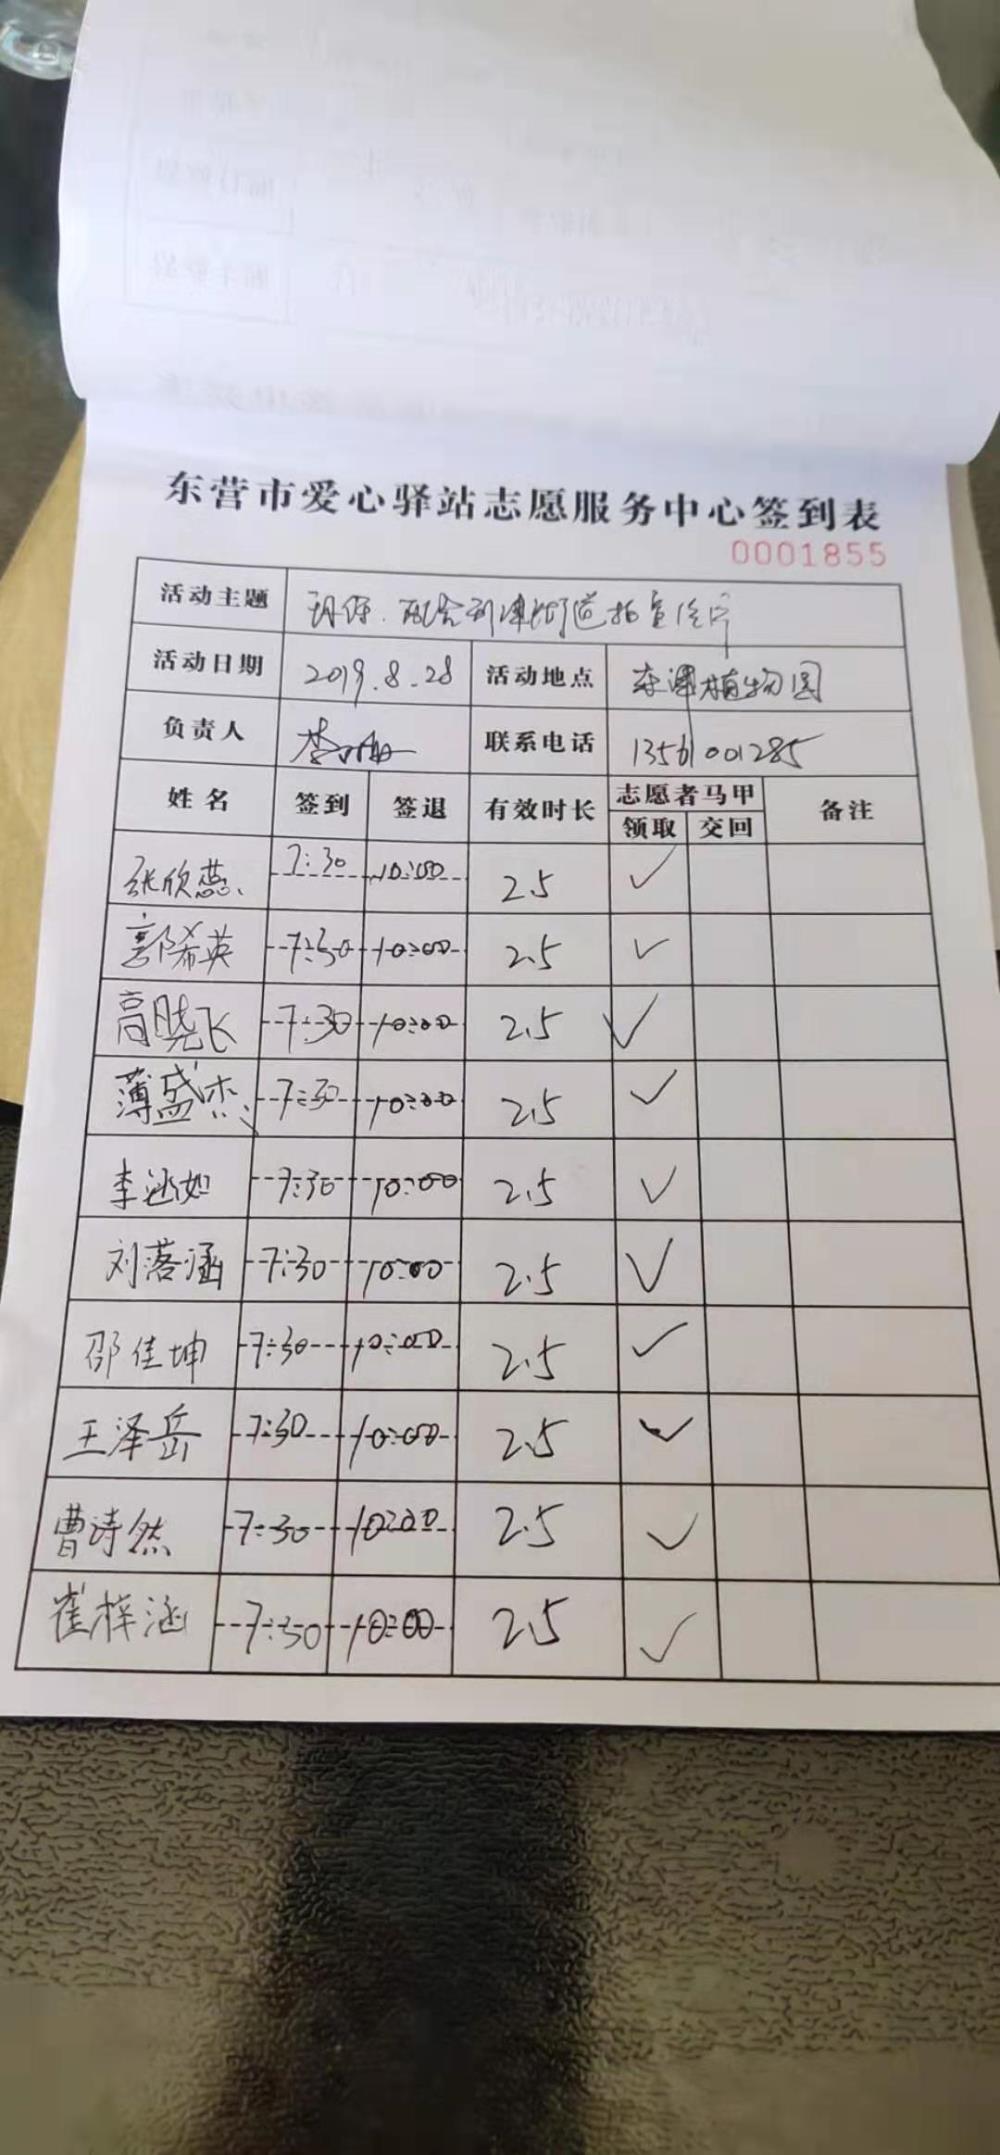 东营市爱心驿站志愿服务中心签到表
0001855
活动主题 环保.配合利津街道拍宣传片
活动日期 2019.8.28 活动地点 东津植物园
负责人 李 联系电话 13561001285
姓名 签到 签退 有效时长 志愿者马甲 备注
领取 交回
张欣蕊 7:30 10:00 2.5 ✓
郭希英 7:30 10:00 2.5 ✓
高晓飞 7:30 10:00 2.5 ✓
薄盛杰 7:30 10:00 2.5 ✓
李涵如 7:30 10:00 2.5 ✓
刘落涵 7:30 10:00 2.5 ✓
邵佳坤 7:30 10:00 2.5 ✓
王泽岳 7:30 10:00 2.5 ✓
曹诗然 7:30 10:00 2.5 ✓
崔梓涵 7:30 10:00 2.5 ✓